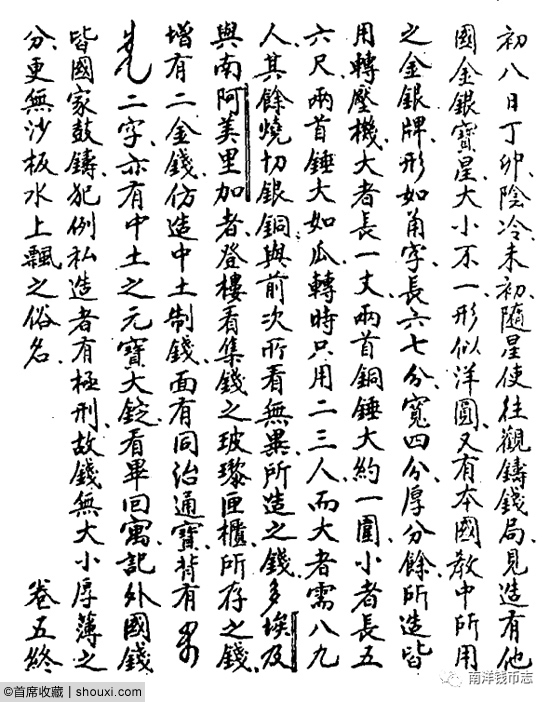 初八日丁卯陰冷未初隨星使往觀鑄錢局見造有他
國金銀寶星大小不一形似洋圓又有本國教中所用
之金銀牌形如甬字長六七分寬四分厚分餘所造皆
用轉壓機大者長一丈兩首銅錘大約一圍小者長五
六尺兩首錘大如瓜轉時只用二三人而大者需八九
人其餘燒切銀銅與前次所看無異所造之錢多埃及
與南阿美里加者登樓看集錢之玻瓈匣櫃所存之錢
增有二金錢仿造中土制錢面有同治通寶背有
二字亦有中土之元寶大錠看畢回寓記外國錢
皆國家鼓鑄犯例私造者有極刑故錢無大小厚薄之
分更無沙板水上飄之俗名 卷五終
©首席收藏 | shouxi.com
南洋钱币志